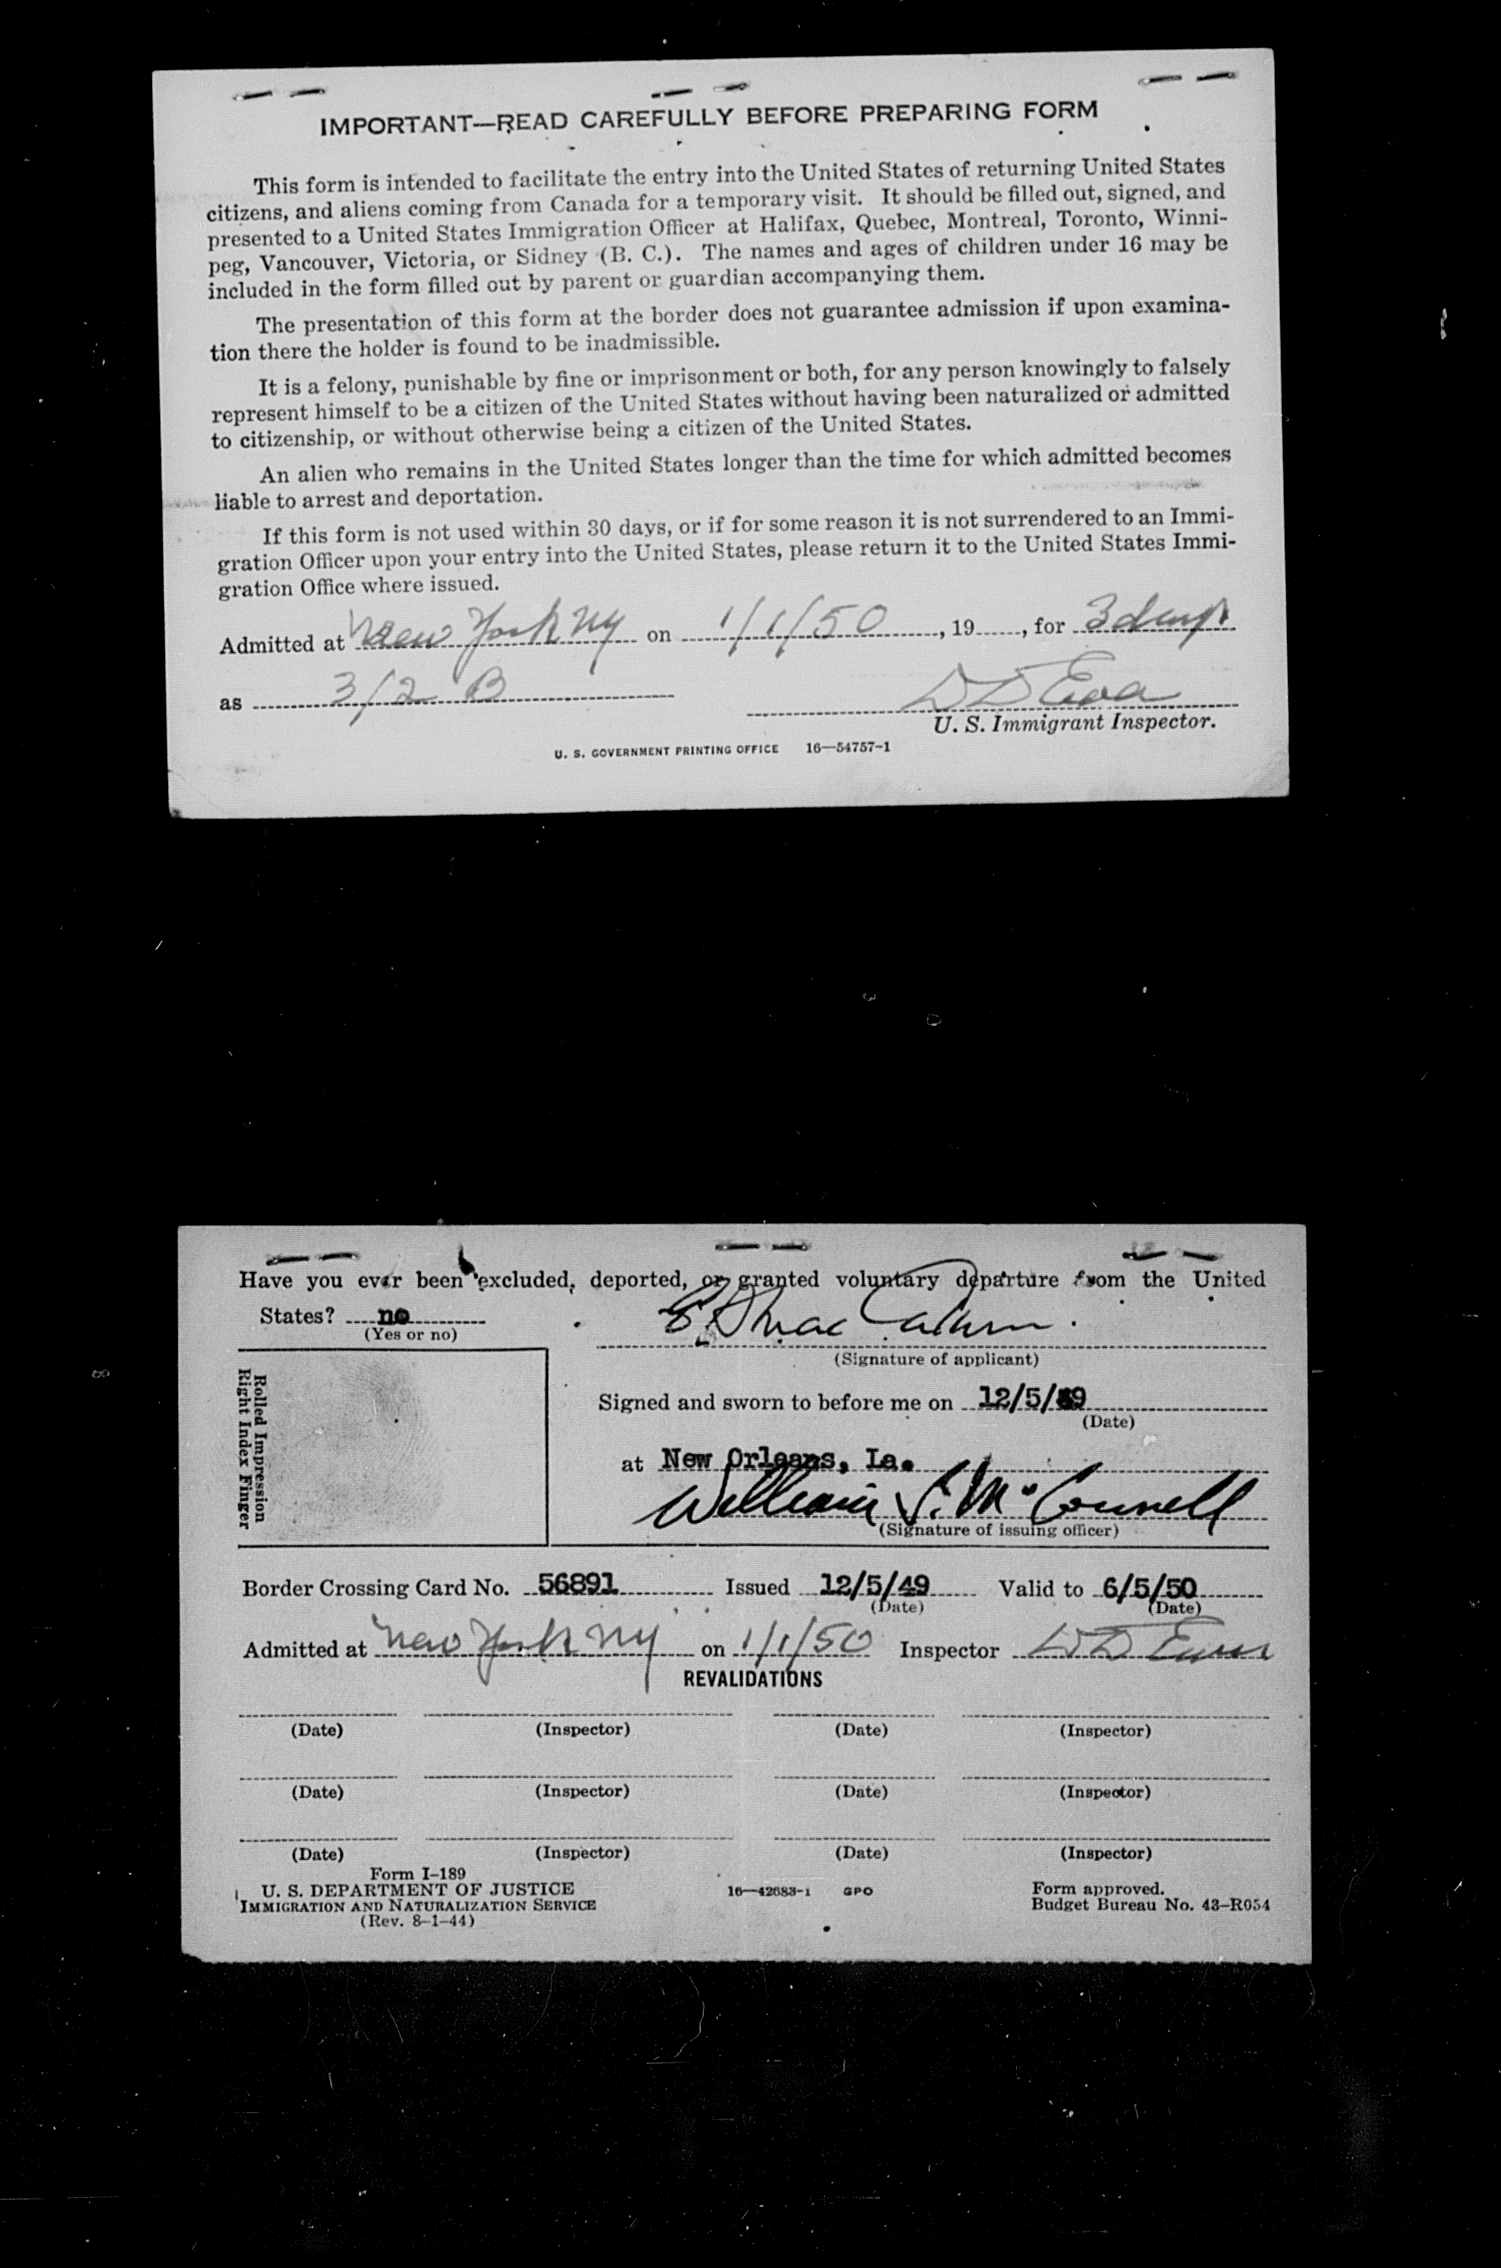 IMPORTANT—READ CAREFULLY BEFORE PREPARING FORM
This form is intended to facilitate the entry into the United States of returning United States
citizens, and aliens coming from Canada for a temporary visit. It should be filled out, signed, and
presented to a United States Immigration Officer at Halifax, Quebec, Montreal, Toronto, Winni-
peg, Vancouver, Victoria, or Sidney (B. C.). The names and ages of children under 16 may be
included in the form filled out by parent or guardian accompanying them.
The presentation of this form at the border does not guarantee admission if upon examina-
tion there the holder is found to be inadmissible.
It is a felony, punishable by fine or imprisonment or both, for any person knowingly to falsely
represent himself to be a citizen of the United States without having been naturalized or admitted
to citizenship, or without otherwise being a citizen of the United States.
An alien who remains in the United States longer than the time for which admitted becomes
liable to arrest and deportation.
If this form is not used within 30 days, or if for some reason it is not surrendered to an Immi-
gration Officer upon your entry into the United States, please return it to the United States Immi-
gration Office where issued.
Admitted at New York NY on 1/1/50, 19 , for 3 days
as 3/2 B D D
U. S. Immigrant Inspector.
U. S. GOVERNMENT PRINTING OFFICE 16—54757-1
Have you ever been excluded, deported, or granted voluntary departure from the United
States? no
(Yes or no)
(Signature of applicant)
Rolled Impression
Right Index Finger
Signed and sworn to before me on 12/5/49
(Date)
at New Orleans, La.
William S. McConnell
(Signature of issuing officer)
Border Crossing Card No. 56891 Issued 12/5/49 Valid to 6/5/50
(Date) (Date)
Admitted at New York NY on 1/1/50 Inspector D D
REVALIDATIONS
(Date) (Inspector) (Date) (Inspector)
(Date) (Inspector) (Date) (Inspector)
(Date) (Inspector) (Date) (Inspector)
Form I-189
U. S. DEPARTMENT OF JUSTICE
IMMIGRATION AND NATURALIZATION SERVICE
(Rev. 8-1-44)
16—42683-1 GPO
Form approved.
Budget Bureau No. 43-R054